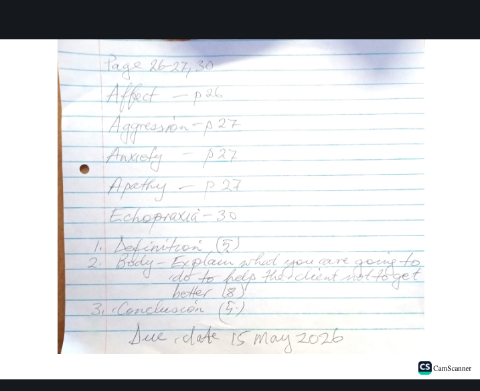 Page 26-27, 30
Affect - p26
Aggression - p27
Anxiety - p27
Apathy - p27
Echopraxia - 30
1. Definition (5)
2. Body - Explain what you are going to
do to help the client not to get
better (8)
3. Conclusion (5)
Due date 15 May 2026
CS CamScanner